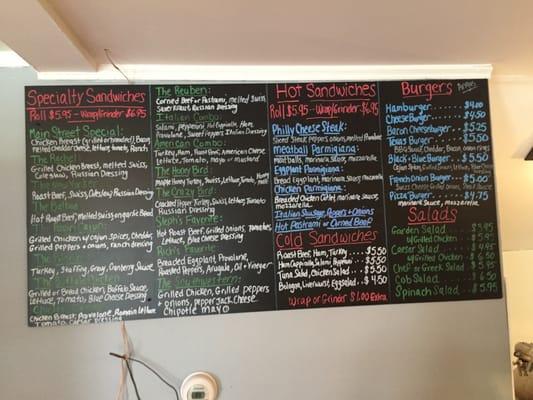 Specialty Sandwiches
Roll $5.95 - Wrap/Grinder $6.95
Main Street Special:
Chicken Breast (grilled or breaded), Bacon
Melted Cheddar Cheese, lettuce, tomato, Ranch
The Rachel
Grilled Chicken Breast, melted Swiss,
Coleslaw, Russian Dressing
Roast Beef, Swiss, Coleslaw, Russian Dressing
Hot Roast Beef, Melted Swiss on garlic Bread
Cajun
Grilled Chicken w/ Cajun Spices, Cheddar,
Grilled peppers + onions, ranch dressing
The
Turkey, Stuffing, Gravy, Cranberry Sauce
The
Grilled or Bread Chicken, Buffalo Sauce,
Lettuce, Tomato, Blue Cheese Dressing
Chicken Breast, Provolone, Romaine Lettuce
Tomato, Caesar Dressing
The Reuben:
Corned Beef or Pastrami, melted Swiss,
Sauerkraut, Russian Dressing
Italian Combo:
Salami, Pepperoni, Ham,
Provolone, Sweet Peppers, Italian Dressing
American Combo:
Turkey, Ham, Roast Beef, American Cheese
Lettuce, Tomato, mayo or mustard
The Honey Bird
Maple Honey Turkey, Swiss, Lettuce, Tomato, Honey
The Crazy Bird:
Cracked Pepper Turkey, Swiss, Lettuce, Tomato
Russian Dressing
Steph's Favorite:
Hot Roast Beef, Grilled Onions, Tomato
Lettuce, Blue Cheese Dressing
Rich's Favorite
Breaded Eggplant, Provolone,
Roasted Peppers, Arugula, Oil + Vinegar
The Southwestern:
Grilled Chicken, Grilled peppers
+ onions, pepperjack Cheese
Chipotle mayo
Hot Sandwiches
Roll $5.95 - Wrap/Grinder $6.95
Philly Cheese Steak:
Sliced Steak, peppers, onions, Melted Provolone
Meatball Parmigiana:
Meatballs, marinara Sauce, mozzarella
Eggplant Parmigiana:
Breaded Eggplant, Marinara Sauce, mozzarella
Chicken Parmigiana:
Breaded Chicken Cutlet, marinara Sauce,
mozzarella
Italian Sausage, Peppers + Onions
Hot Pastrami or Corned Beef
Cold Sandwiches
Roast Beef, Ham, Turkey .... $5.50
Ham, Capicola, Salami, Provolone .. $5.50
Tuna Salad, Chicken Salad .... $5.50
Bologna, Liverwurst, Egg Salad .. $4.50
Wrap or Grinder $1.00 Extra
Burgers
Hamburger ........ $4.00
Cheese Burger ..... $4.50
Bacon Cheese Burger .. $5.25
Texas Burger ....... $5.50
BBQ Sauce, Cheddar, Bacon, onion rings
Black + Blue Burger .... $5.50
French Onion Burger .. $5.00
Pizza Burger ........ $4.75
Marinara Sauce, mozzarella
Salads
Garden Salad .... $3.95
w/ Grilled Chicken .. $5.95
Caesar Salad ..... $4.95
w/ Grilled Chicken .. $6.50
Chef or Greek Salad .. $5.95
Cob Salad ....... $6.50
Spinach Salad ..... $5.95